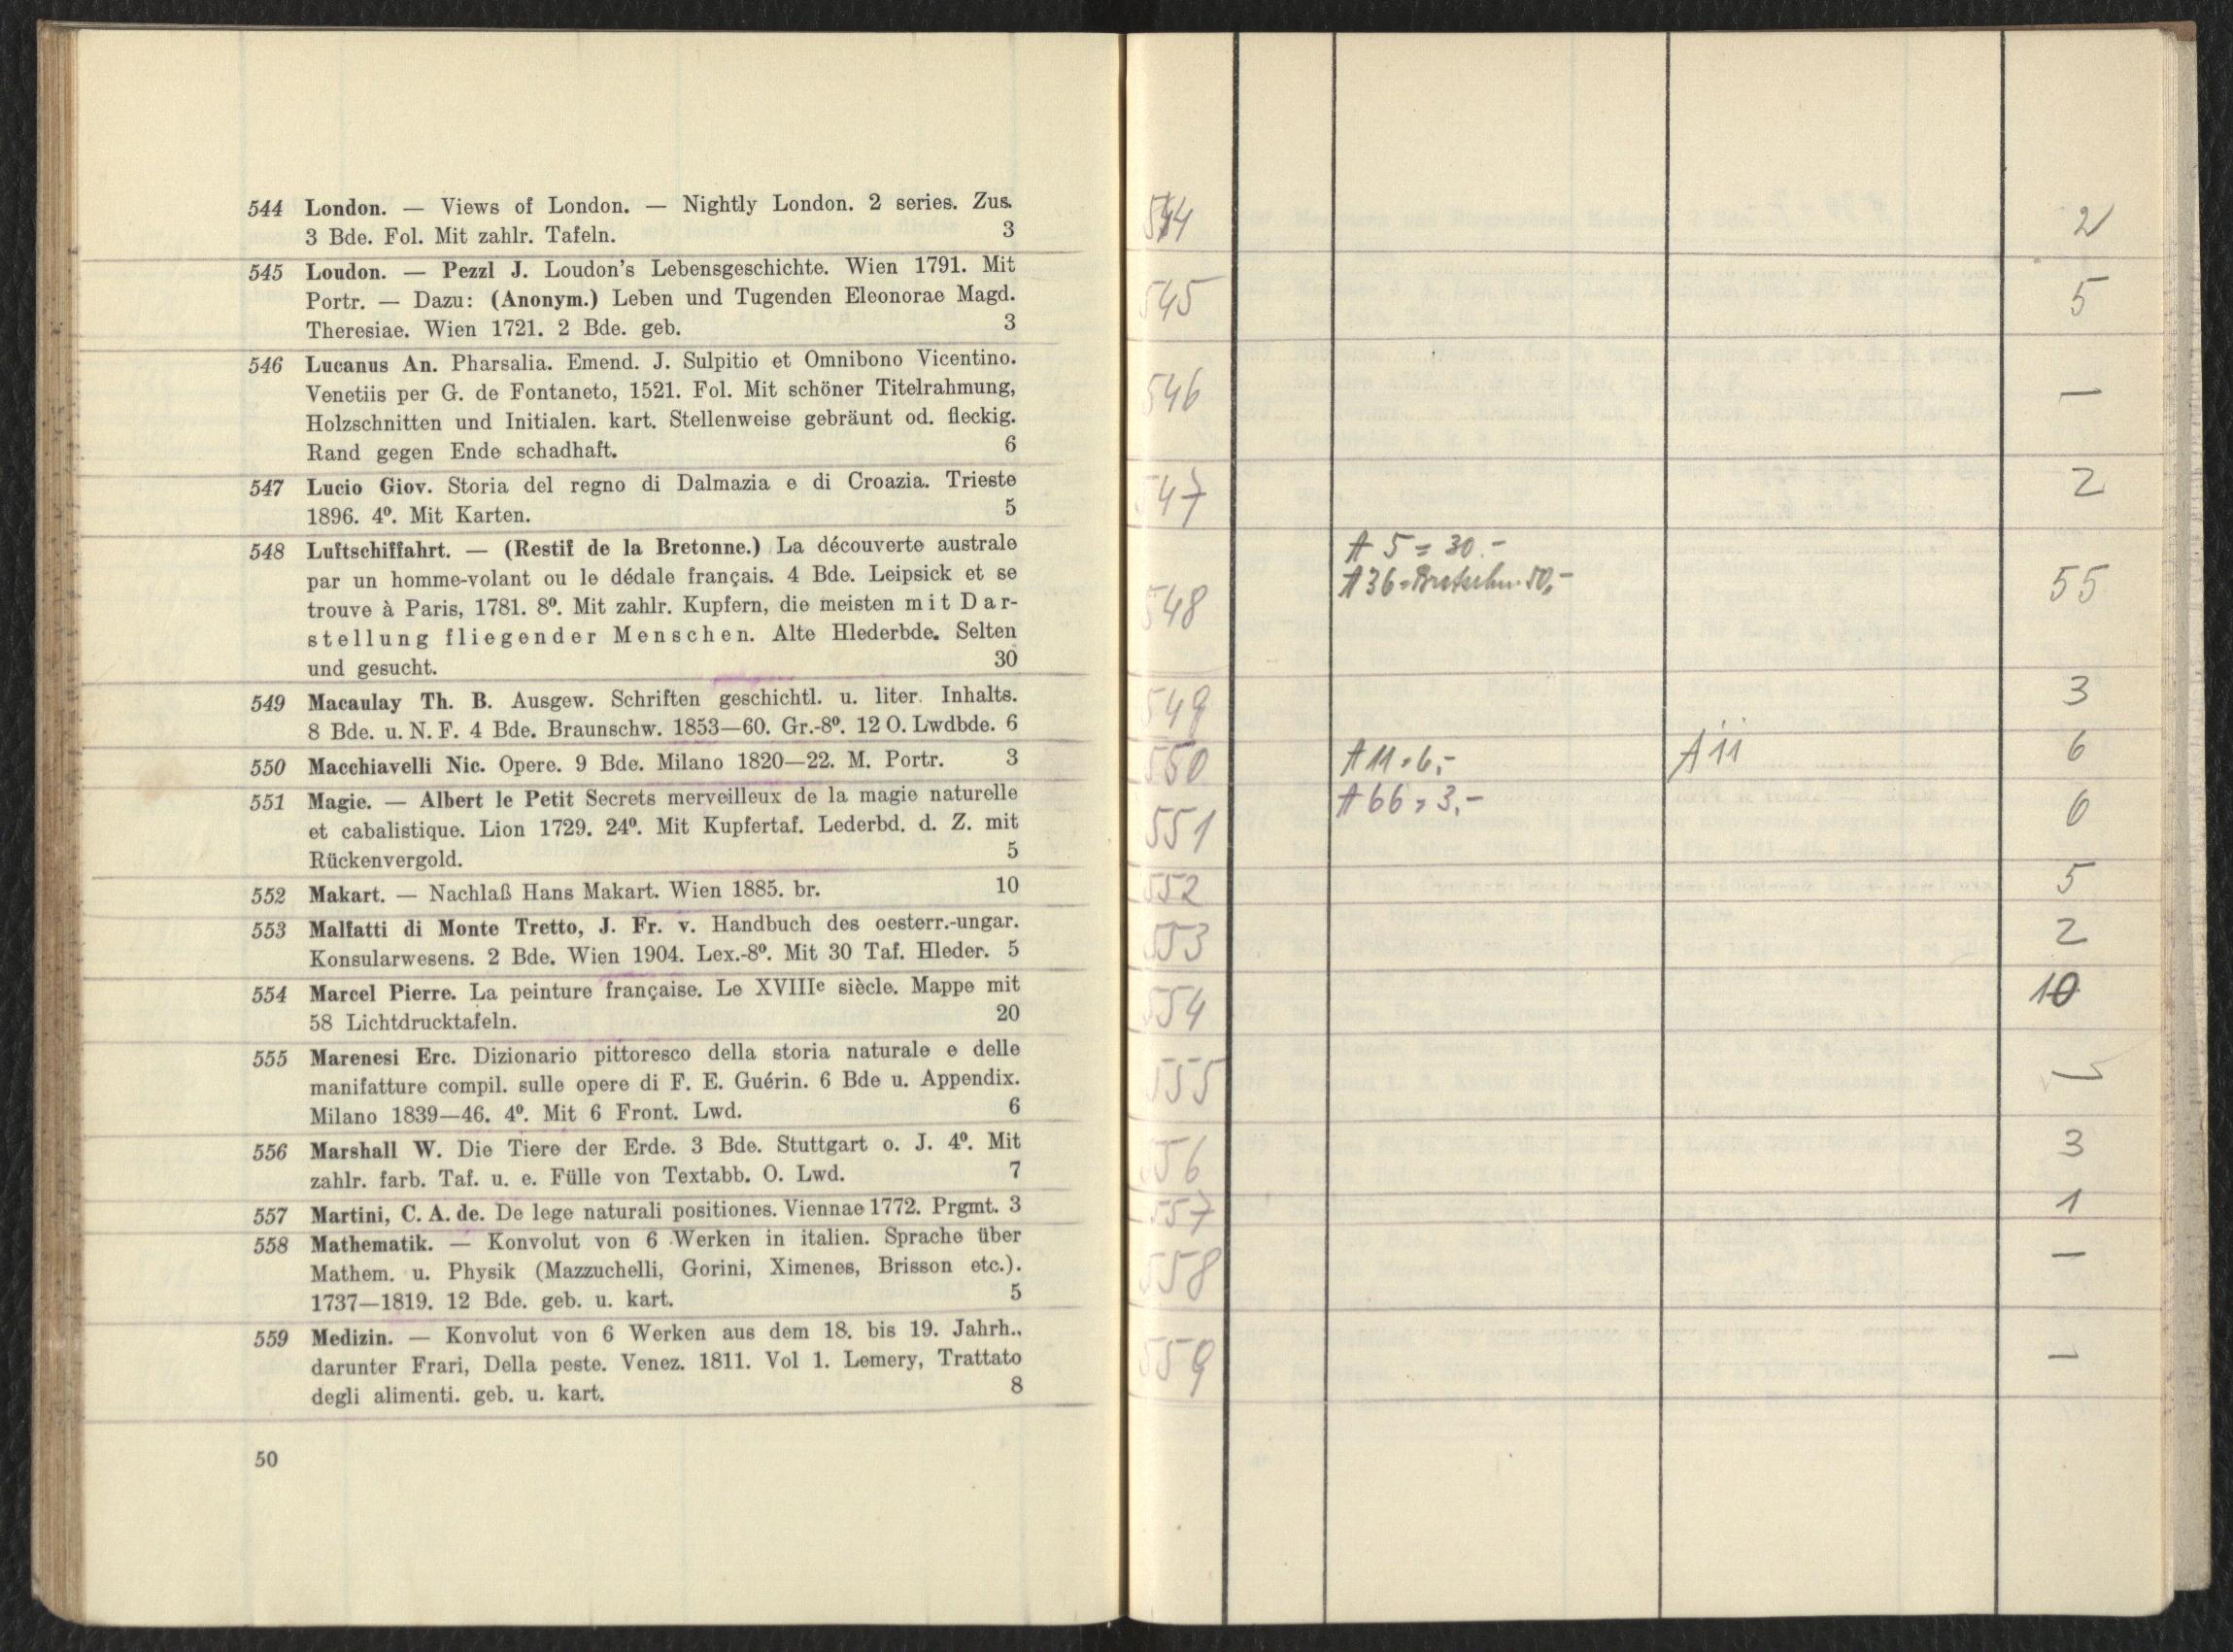 544 London. — Views of London. — Nightly London. 2 series. Zus.
3 Bde. Fol. Mit zahlr. Tafeln. 3
545 Loudon. — Pezzl J. Loudon's Lebensgeschichte. Wien 1791. Mit
Portr. — Dazu: (Anonym.) Leben und Tugenden Eleonorae Magd.
Theresiae. Wien 1721. 2 Bde. geb. 3
546 Lucanus An. Pharsalia. Emend. J. Sulpitio et Omnibono Vicentino.
Venetiis per G. de Fontaneto, 1521. Fol. Mit schöner Titelrahmung,
Holzschnitten und Initialen. kart. Stellenweise gebräunt od. fleckig.
Rand gegen Ende schadhaft. 6
547 Lucio Giov. Storia del regno di Dalmazia e di Croazia. Trieste
1896. 4º. Mit Karten. 5
548 Luftschiffahrt. — (Restif de la Bretonne.) La découverte australe
par un homme-volant ou le dédale français. 4 Bde. Leipsick et se
trouve à Paris, 1781. 8º. Mit zahlr. Kupfern, die meisten mit Dar-
stellung fliegender Menschen. Alte Hlederbde. Selten
und gesucht. 30
549 Macaulay Th. B. Ausgew. Schriften geschichtl. u. liter. Inhalts.
8 Bde. u. N. F. 4 Bde. Braunschw. 1853—60. Gr.-8º. 12 O. Lwdbde. 6
550 Macchiavelli Nic. Opere. 9 Bde. Milano 1820—22. M. Portr. 3
551 Magie. — Albert le Petit Secrets merveilleux de la magie naturelle
et cabalistique. Lion 1729. 24º. Mit Kupfertaf. Lederbd. d. Z. mit
Rückenvergold. 5
552 Makart. — Nachlaß Hans Makart. Wien 1885. br. 10
553 Malfatti di Monte Tretto, J. Fr. v. Handbuch des oesterr.-ungar.
Konsularwesens. 2 Bde. Wien 1904. Lex.-8º. Mit 30 Taf. Hleder. 5
554 Marcel Pierre. La peinture française. Le XVIIIe siècle. Mappe mit
58 Lichtdrucktafeln. 20
555 Marenesi Erc. Dizionario pittoresco della storia naturale e delle
manifatture compil. sulle opere di F. E. Guérin. 6 Bde u. Appendix.
Milano 1839—46. 4º. Mit 6 Front. Lwd. 6
556 Marshall W. Die Tiere der Erde. 3 Bde. Stuttgart o. J. 4º. Mit
zahlr. farb. Taf. u. e. Fülle von Textabb. O. Lwd. 7
557 Martini, C. A. de. De lege naturali positiones. Viennae 1772. Prgmt. 3
558 Mathematik. — Konvolut von 6 Werken in italien. Sprache über
Mathem. u. Physik (Mazzuchelli, Gorini, Ximenes, Brisson etc.).
1737—1819. 12 Bde. geb. u. kart. 5
559 Medizin. — Konvolut von 6 Werken aus dem 18. bis 19. Jahrh.,
darunter Frari, Della peste. Venez. 1811. Vol 1. Lemery, Trattato
degli alimenti. geb. u. kart. 8
50
544 2
545 5
546 —
547 2
A 5 = 30.-
A 36 = 50,-
548 55
549 3
550 A 11 = 6,- A 11 6
551 A 66 = 3,- 6
552 5
553 2
554 10
555 —
556 3
557 1
558 —
559 —